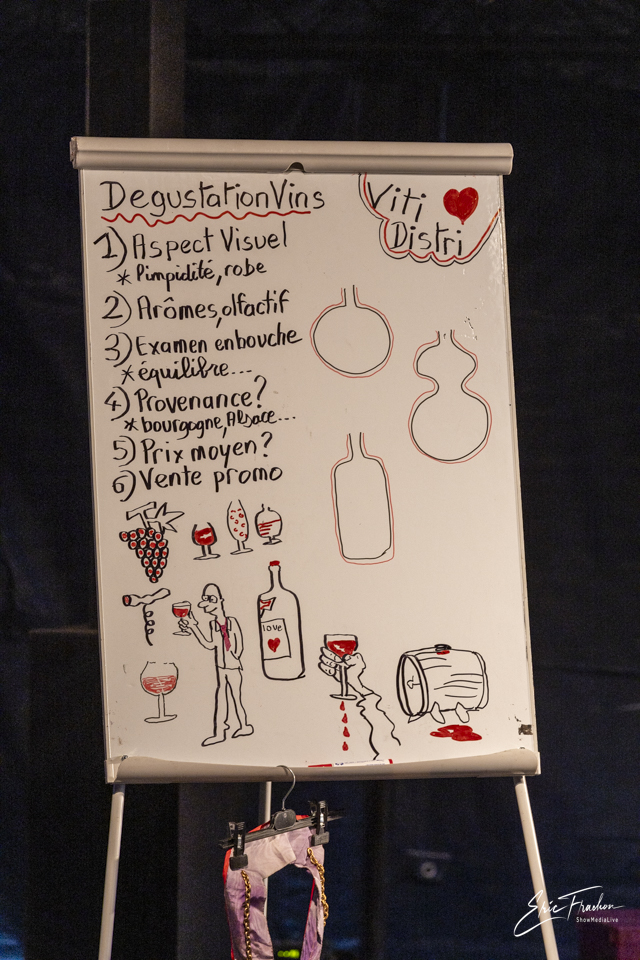 Degustation Vins
Viti
Distri
1) Aspect Visuel
* limpidité, robe
2) Arômes, olfactif
3) Examen en bouche
* équilibre...
4) Provenance?
* bourgogne, Alsace...
5) Prix moyen?
6) Vente promo
love
Eric Frachon
ShowMediaLive